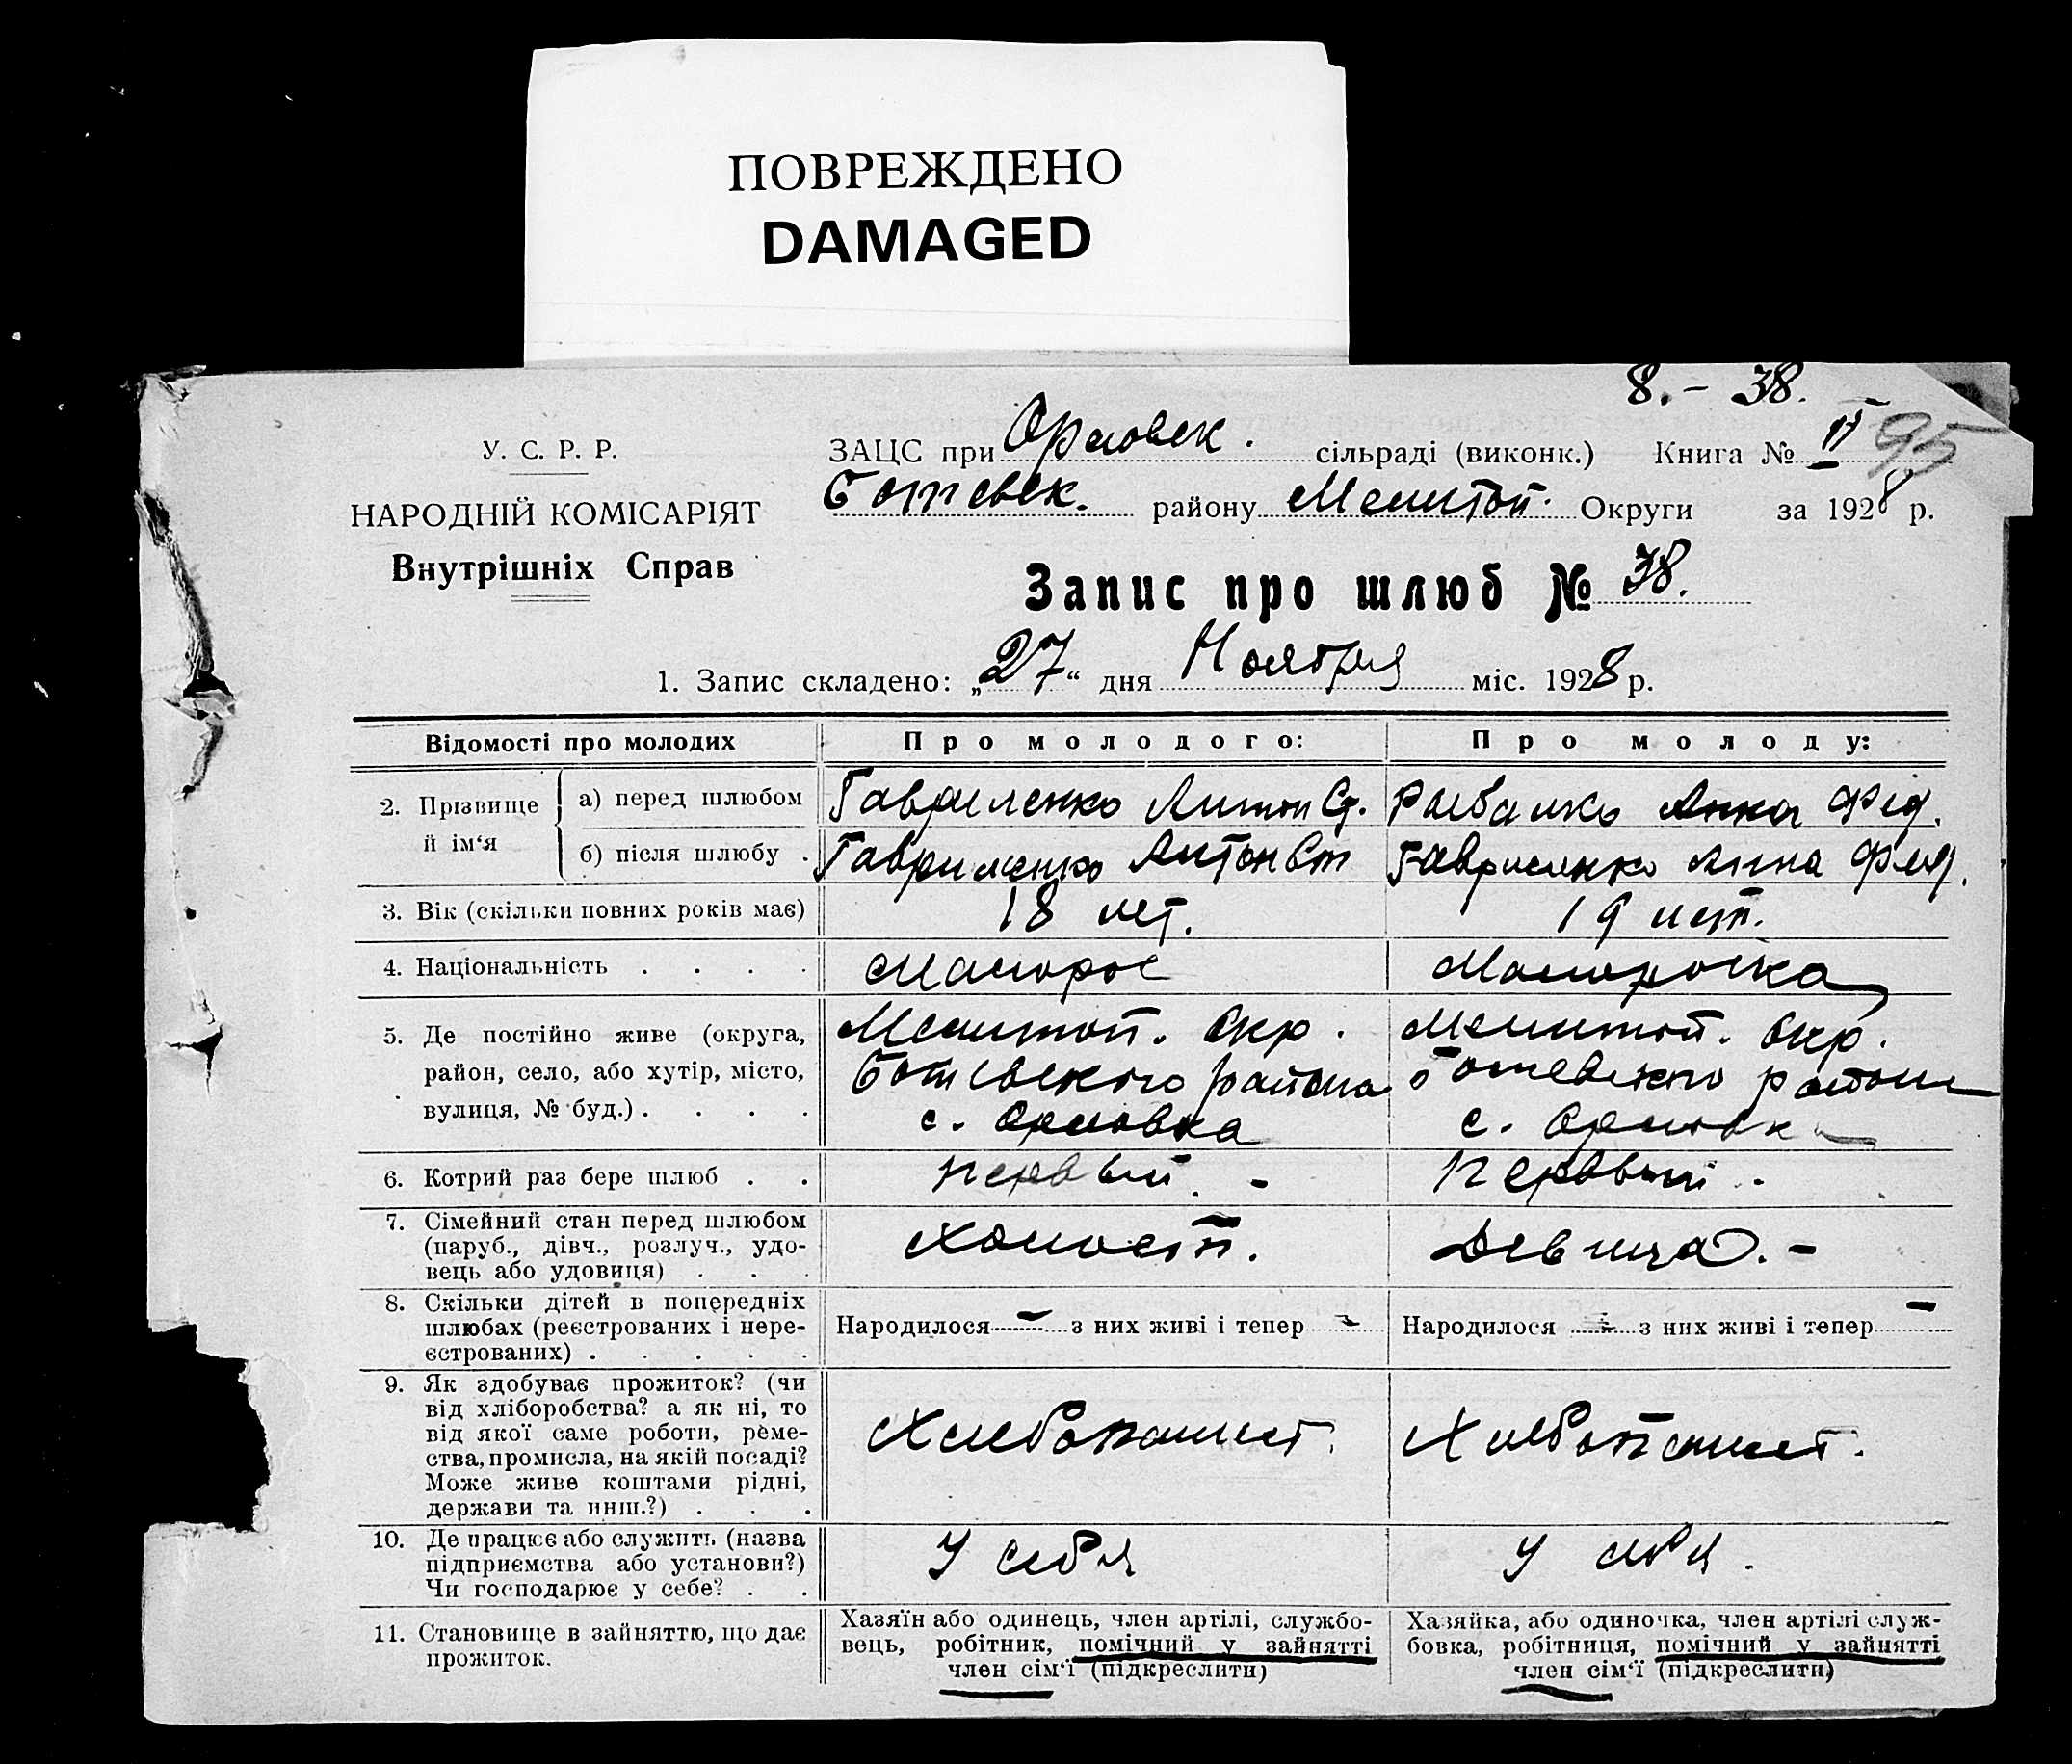 ПОВРЕЖДЕНО
DAMAGED
8.- 38.
У. С. Р. Р.
НАРОДНІЙ КОМІСАРІЯТ
Внутрішніх Справ
ЗАЦС при Орловск. сільраді (виконк.) Книга № II 95
Ботевск. району Мелитоп. Округи за 1928 р.
Запис про шлюб № 38.
1. Запис складено: „27“ дня Ноября міс. 1928 р.
Відомості про молодих
Про молодого:
Про молоду:
2. Прізвище й ім‘я
а) перед шлюбом
Гавриленко Антон Ст.
Рыбалко Анна Фед.
б) після шлюбу .
Гавриленко Антон Ст
Гавриленко Анна Фед.
3. Вік (скільки повних років має)
18 лет.
19 лет.
4. Національність . . . .
Малорос
Малороска
5. Де постійно живе (округа,
район, село, або хутір, місто,
вулиця, № буд.) . . . .
Мелитоп. Окр.
Ботевского района
с. Орловка
Мелитоп. Окр.
Ботевского района
с. Орловка
6. Котрий раз бере шлюб . .
первый. -
первый -
7. Сімейний стан перед шлюбом
(паруб., дівч., розлуч., удо-
вець або удовиця) . . .
Холост.
Девица. -
8. Скільки дітей в попередніх
шлюбах (реєстрованих і нере-
єстрованих) . . . . .
Народилося - з них живі і тепер -
Народилося - з них живі і тепер -
9. Як здобуває прожиток? (чи
від хліборобства? а як ні, то
від якої саме роботи, реме-
ства, промисла, на якій посаді?
Може живе коштами рідні,
держави та инш.?) . . .
Хлебопашест.
Хлебопашест.
10. Де працює або служить (назва
підприємства або установи?)
Чи господарює у себе? . .
У себя
У себя.
11. Становище в зайняттю, що дає
прожиток.
Хазяїн або одинець, член артілі, службо-
вець, робітник, помічний у зайнятті
член сім‘ї (підкреслити)
Хазяйка, або одиночка, член артілі служ-
бовка, робітниця, помічний у зайнятті
член сім‘ї (підкреслити)